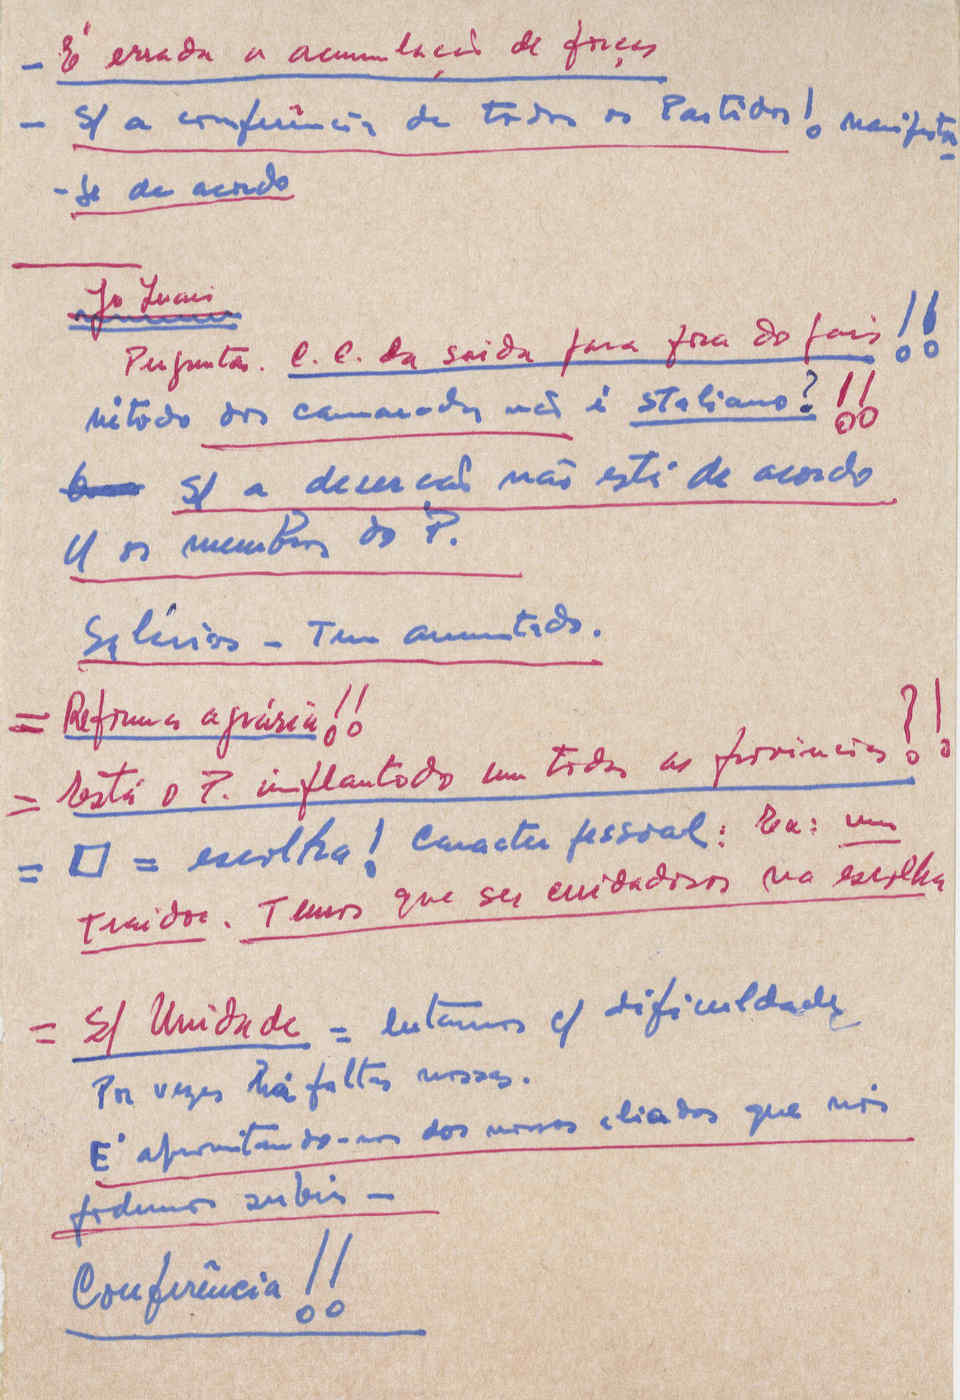 - É errada a acumulação de forças
- S/ a conferência de todos os Partidos! manifesta
- se de acordo
Perguntas. C. C. da saida para fora do país!!
método dos camaradas não é staliano? !!
S/ a decerção não está de acordo
c/ os membros do P.
Salários - Tem aumentado.
= Reforma agrária!!
= Está o P. implantado em todas as províncias?!
= □ = escolha! Caracter pessoal: Ex: um
traidor. Temos que ser cuidadosos na escolha
= S/ Unidade = lutamos c/ dificuldade
Por vezes há faltas nossas.
E' aproveitando-nos dos nossos aliados que nós
podemos subir -
Conferência!!